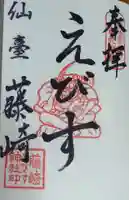 奉拝
えびす
仙臺
藤崎
藤崎